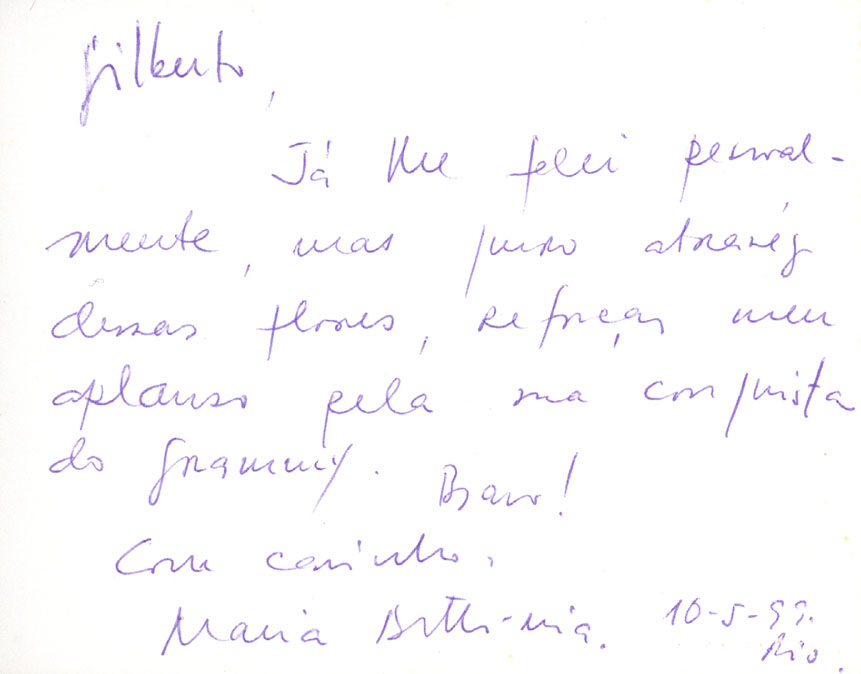 Gilberto,
Já lhe falei pessoal-
mente, mas quero através
dessas flores, reforçar meu
aplauso pela sua conquista
do Grammy. Bravo!
Com carinho,
Maria Bethânia. 10-5-99.
Rio.